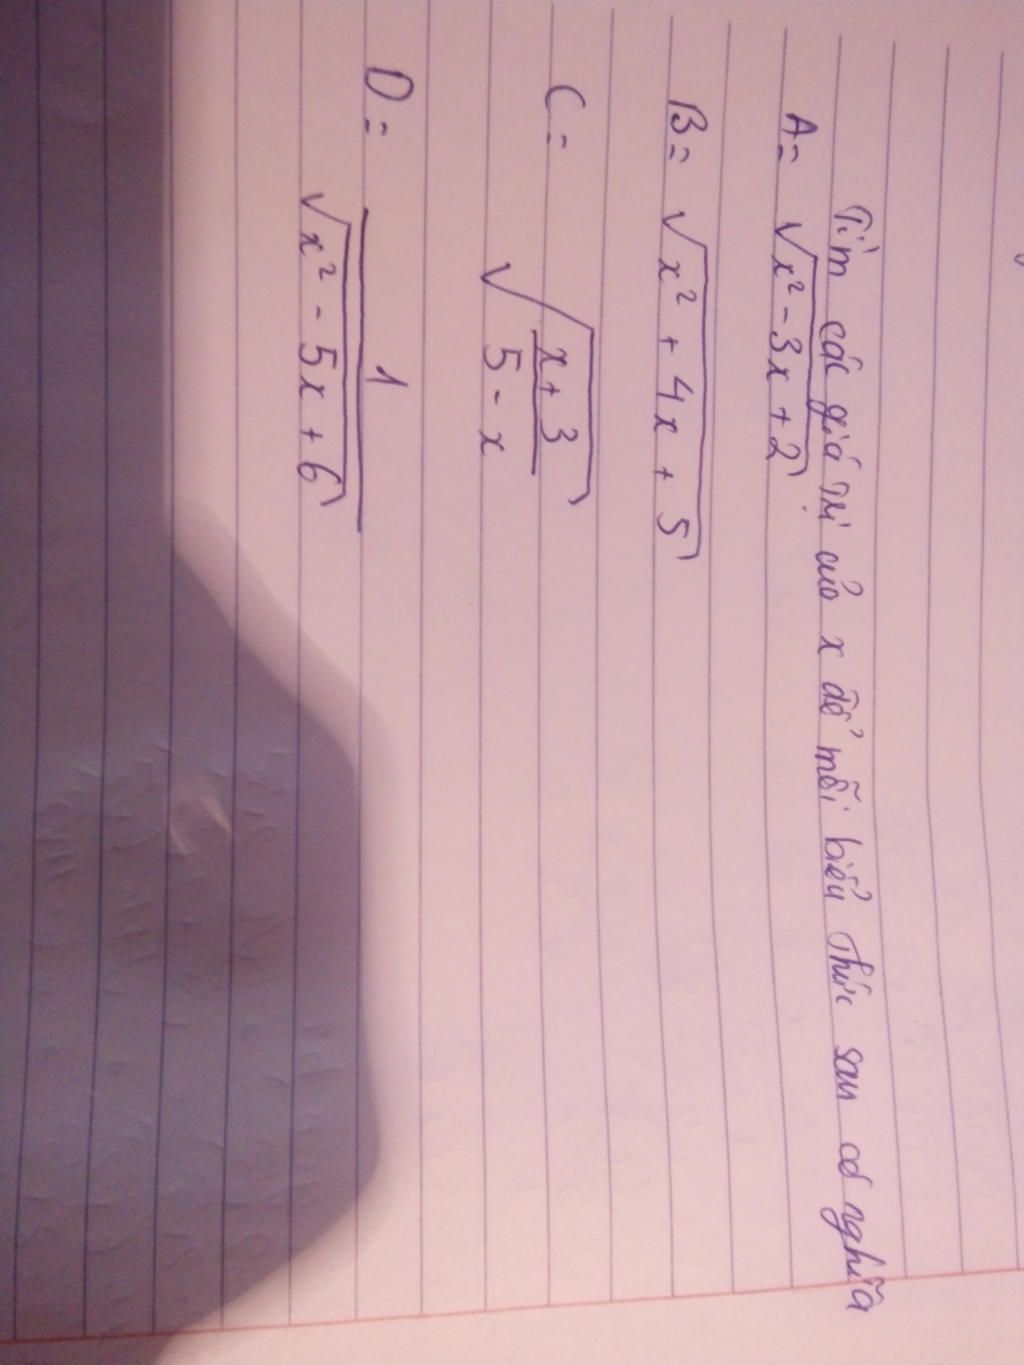 Tìm các giá trị của x để mỗi biểu thức sau có nghĩa
A = √x² - 3x + 2
B = √x² + 4x + 5
C = √x + 3
5 - x
D = 1
√x² - 5x + 6